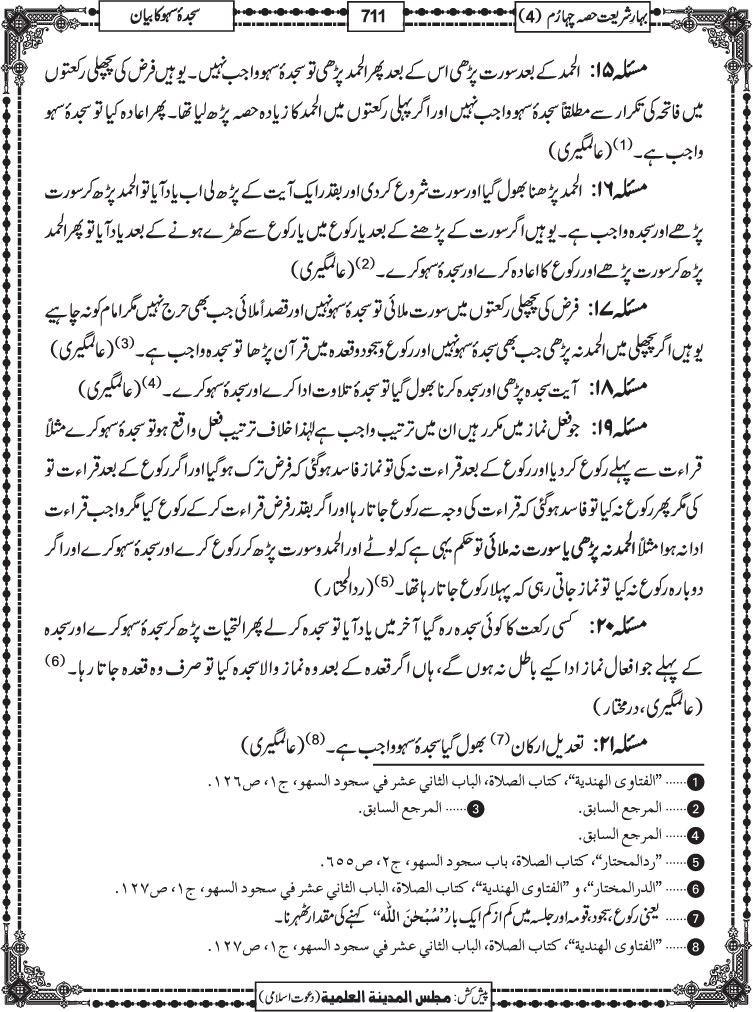 بہارِ شریعت حصہ چہارم (4)
711
سجدۂ سہو کا بیان
مسئلہ ۱۵: الحمد کے بعد سورت پڑھی اس کے بعد پھر الحمد پڑھی تو سجدۂ سہو واجب نہیں۔ یوہیں فرض کی پچھلی رکعتوں
میں فاتحہ کی تکرار سے مطلقاً سجدۂ سہو واجب نہیں اور اگر پہلی رکعتوں میں الحمد کا زیادہ حصہ پڑھ لیا تھا۔ پھر اعادہ کیا تو سجدۂ سہو
واجب ہے۔ (1) (عالمگیری)
مسئلہ ۱۶: الحمد پڑھنا بھول گیا اور سورت شروع کر دی اور بقدر ایک آیت کے پڑھ لی اب یاد آیا تو الحمد پڑھ کر سورت
پڑھے اور سجدہ واجب ہے۔ یوہیں اگر سورت کے پڑھنے کے بعد یا رکوع میں یا رکوع سے کھڑے ہونے کے بعد یاد آیا تو پھر الحمد
پڑھ کر سورت پڑھے اور رکوع کا اعادہ کرے اور سجدۂ سہو کرے۔ (2) (عالمگیری)
مسئلہ ۱۷: فرض کی پچھلی رکعتوں میں سورت ملائی تو سجدۂ سہو نہیں اور قصداً ملائی جب بھی حرج نہیں مگر امام کو نہ چاہیے
یوہیں اگر پچھلی میں الحمد نہ پڑھی جب بھی سجدۂ سہو نہیں اور رکوع و سجود و قعدہ میں قرآن پڑھا تو سجدہ واجب ہے۔ (3) (عالمگیری)
مسئلہ ۱۸: آیت سجدہ پڑھی اور سجدہ کرنا بھول گیا تو سجدۂ تلاوت ادا کرے اور سجدۂ سہو کرے۔ (4) (عالمگیری)
مسئلہ ۱۹: جو فعل نماز میں مکرر ہیں ان میں ترتیب واجب ہے لہٰذا خلاف ترتیب فعل واقع ہو تو سجدۂ سہو کرے مثلاً
قراءت سے پہلے رکوع کر دیا اور رکوع کے بعد قراءت نہ کی تو نماز فاسد ہوگئی کہ فرض ترک ہوگیا اور اگر رکوع کے بعد قراءت تو
کی مگر پھر رکوع نہ کیا تو فاسد ہوگئی کہ قراءت کی وجہ سے رکوع جاتا رہا اور اگر بقدر فرض قراءت کر کے رکوع کیا مگر واجب قراءت
ادا نہ ہوا مثلاً الحمد نہ پڑھی یا سورت نہ ملائی تو حکم یہی ہے کہ لوٹے اور الحمد و سورت پڑھ کر رکوع کرے اور سجدۂ سہو کرے اور اگر
دوبارہ رکوع نہ کیا تو نماز جاتی رہی کہ پہلا رکوع جاتا رہا تھا۔ (5) (ردالمحتار)
مسئلہ ۲۰: کسی رکعت کا کوئی سجدہ رہ گیا آخر میں یاد آیا تو سجدہ کر لے پھر التحیات پڑھ کر سجدۂ سہو کرے اور سجدہ
کے پہلے جو افعال نماز ادا کیے باطل نہ ہوں گے، ہاں اگر قعدہ کے بعد وہ نماز والا سجدہ کیا تو صرف وہ قعدہ جاتا رہا۔ (6)
(عالمگیری، درمختار)
مسئلہ ۲۱: تعدیل ارکان (7) بھول گیا سجدۂ سہو واجب ہے۔ (8) (عالمگیری)
1 ...... "الفتاوی الهندية"، كتاب الصلاة، الباب الثاني عشر في سجود السهو، ج۱، ص۱۲۶.
2 ...... المرجع السابق. 3 ...... المرجع السابق.
4 ...... المرجع السابق.
5 ...... "ردالمحتار"، كتاب الصلاة، باب سجود السهو، ج۲، ص۶۵۵.
6 ...... "الدرالمختار"، و "الفتاوی الهندية"، كتاب الصلاة، الباب الثاني عشر في سجود السهو، ج۱، ص۱۲۷.
7 ...... یعنی رکوع، سجود، قومہ اور جلسہ میں کم از کم ایک بار "سُبْحٰنَ اللہ" کہنے کی مقدار ٹھہرنا۔
8 ...... "الفتاوی الهندية"، كتاب الصلاة، الباب الثاني عشر في سجود السهو، ج۱، ص۱۲۷.
پیش کش: مجلس المدینۃ العلمیۃ (دعوت اسلامی)